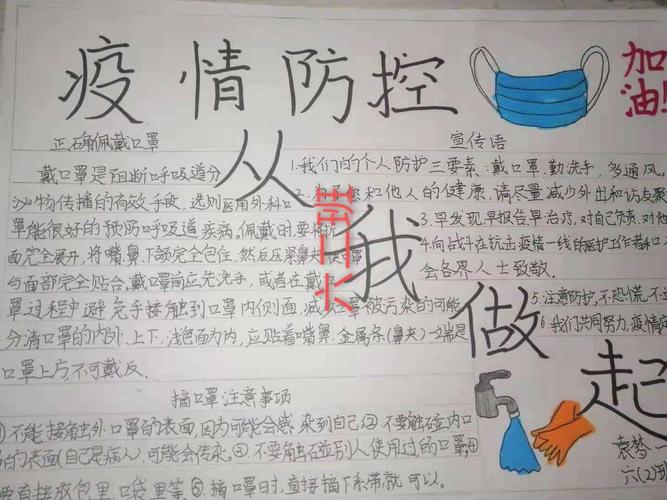 疫情防控
加油!
从我做起
正确佩戴口罩
戴口罩是阻断呼吸道分
泌物传播的有效手段,选则医用外科口
罩能很好的预防呼吸道疾病。佩戴时要将折
面完全展开,将嘴鼻、下颌完全包住,然后压紧鼻夹,使口罩
与面部完全贴合,戴口罩前应先洗手,或者在戴口
罩过程中避免手接触到口罩内侧面,减少口罩被污染的可能
分清口罩的内外、上下,浅色面为内,应贴着嘴鼻,金属条(鼻夹)一端是
口罩上方,不可戴反.
宣传语
1.我们的个人防护三要素:戴口罩.勤洗手,多通风。
2.和他人的健康,请尽量减少外出和访友聚
3.早发现,早报告,早治疗,对自己负责,对他
4.向战斗在抗击疫情一线的医护工作者和
会各界人士致敬.
5.注意防护,不恐慌,不
6.我们共同努力,疫情
摘口罩注意事项
①不能接触外口罩的表面,因为可能会感染到自己②不要触碰内口
的表面(自己是病人),可能会传染。③不要触碰别人使用过的口罩
要直接放包里、口袋里等⑤.摘口罩时,直接摘下系带就可以.
袁梦一
六(2)班